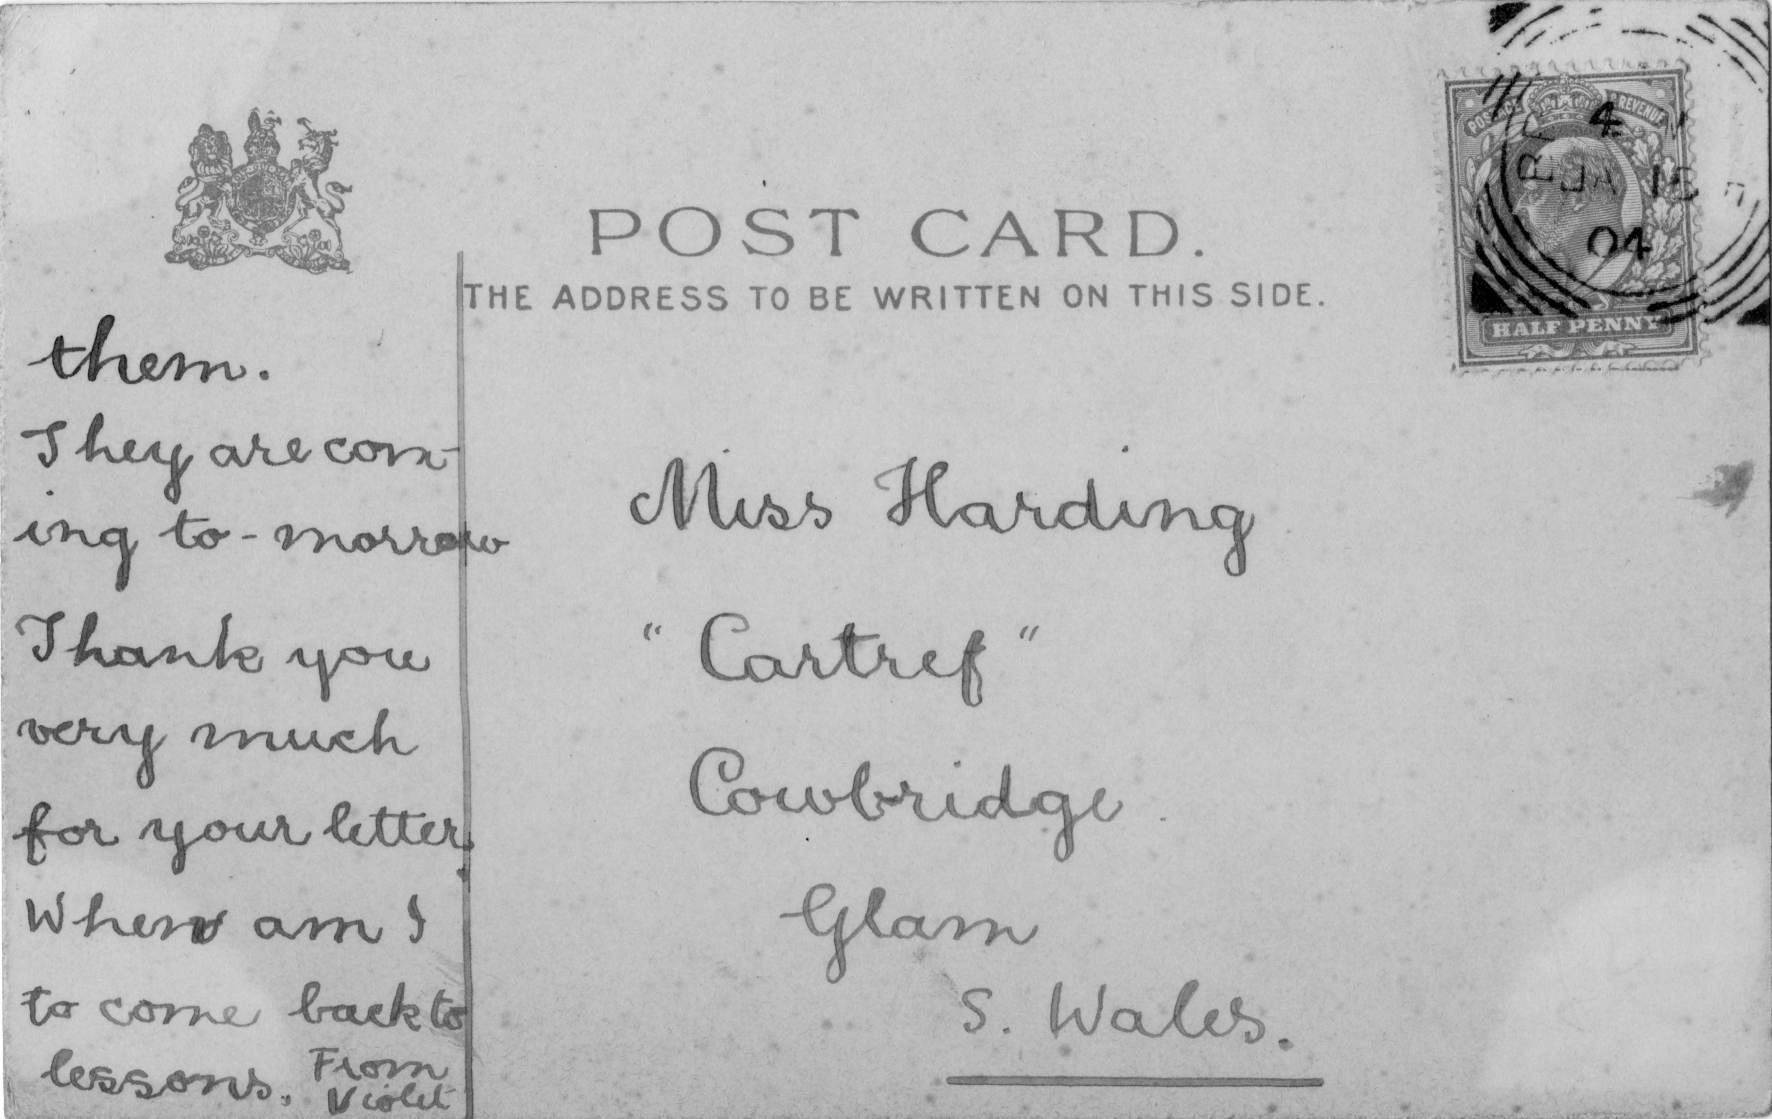 POST CARD.
THE ADDRESS TO BE WRITTEN ON THIS SIDE.
POSTAGE REVENUE
HALF PENNY
4
JA 16
04
them.
They are com-
ing to-morrow
Thank you
very much
for your letter.
When am I
to come back to
lessons. From
Violet
Miss Harding
"Cartref"
Cowbridge
Glam
S. Wales.